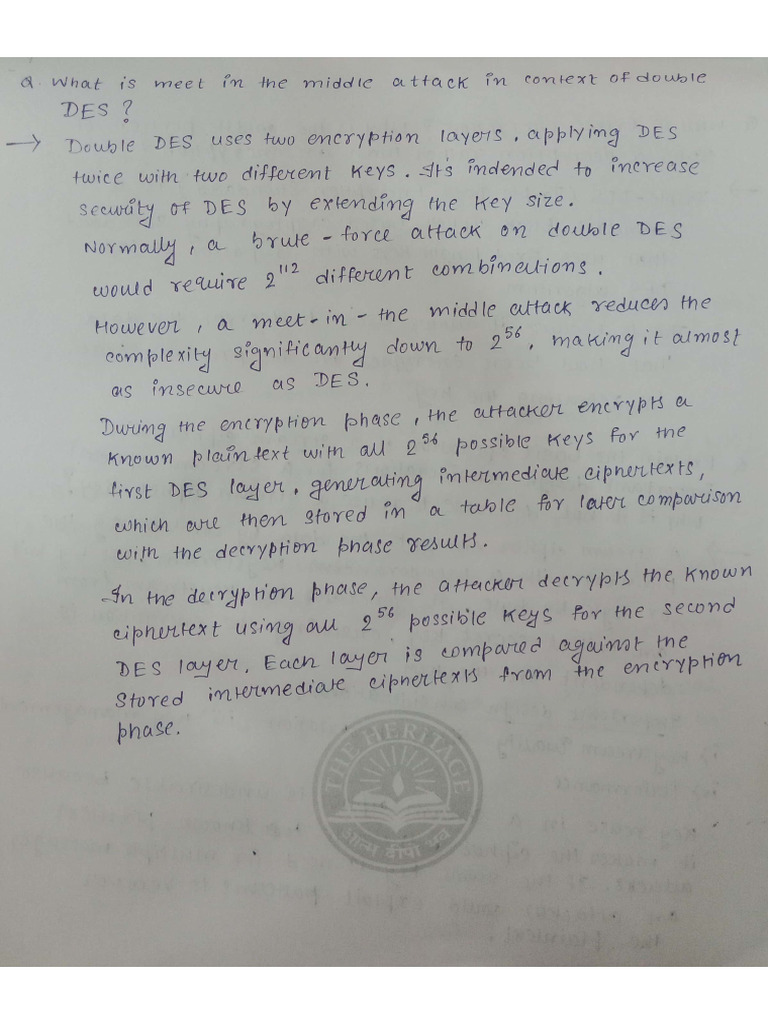 Q. What is meet in the middle attack in context of double
DES?
→ Double DES uses two encryption layers, applying DES
twice with two different keys. It's indended to increase
security of DES by extending the key size.
Normally, a brute-force attack on double DES
would require 2^112 different combinations.
However, a meet-in-the middle attack reduces the
complexity significantly down to 2^56, making it almost
as insecure as DES.
During the encryption phase, the attacker encrypts a
known plaintext with all 2^56 possible keys for the
first DES layer, generating intermediate ciphertexts,
which are then stored in a table for later comparison
with the decryption phase results.
In the decryption phase, the attacker decrypts the known
ciphertext using all 2^56 possible keys for the second
DES layer. Each layer is compared against the
stored intermediate ciphertexts from the encryption
phase.
THE HERITAGE
आत्म दीपो भव